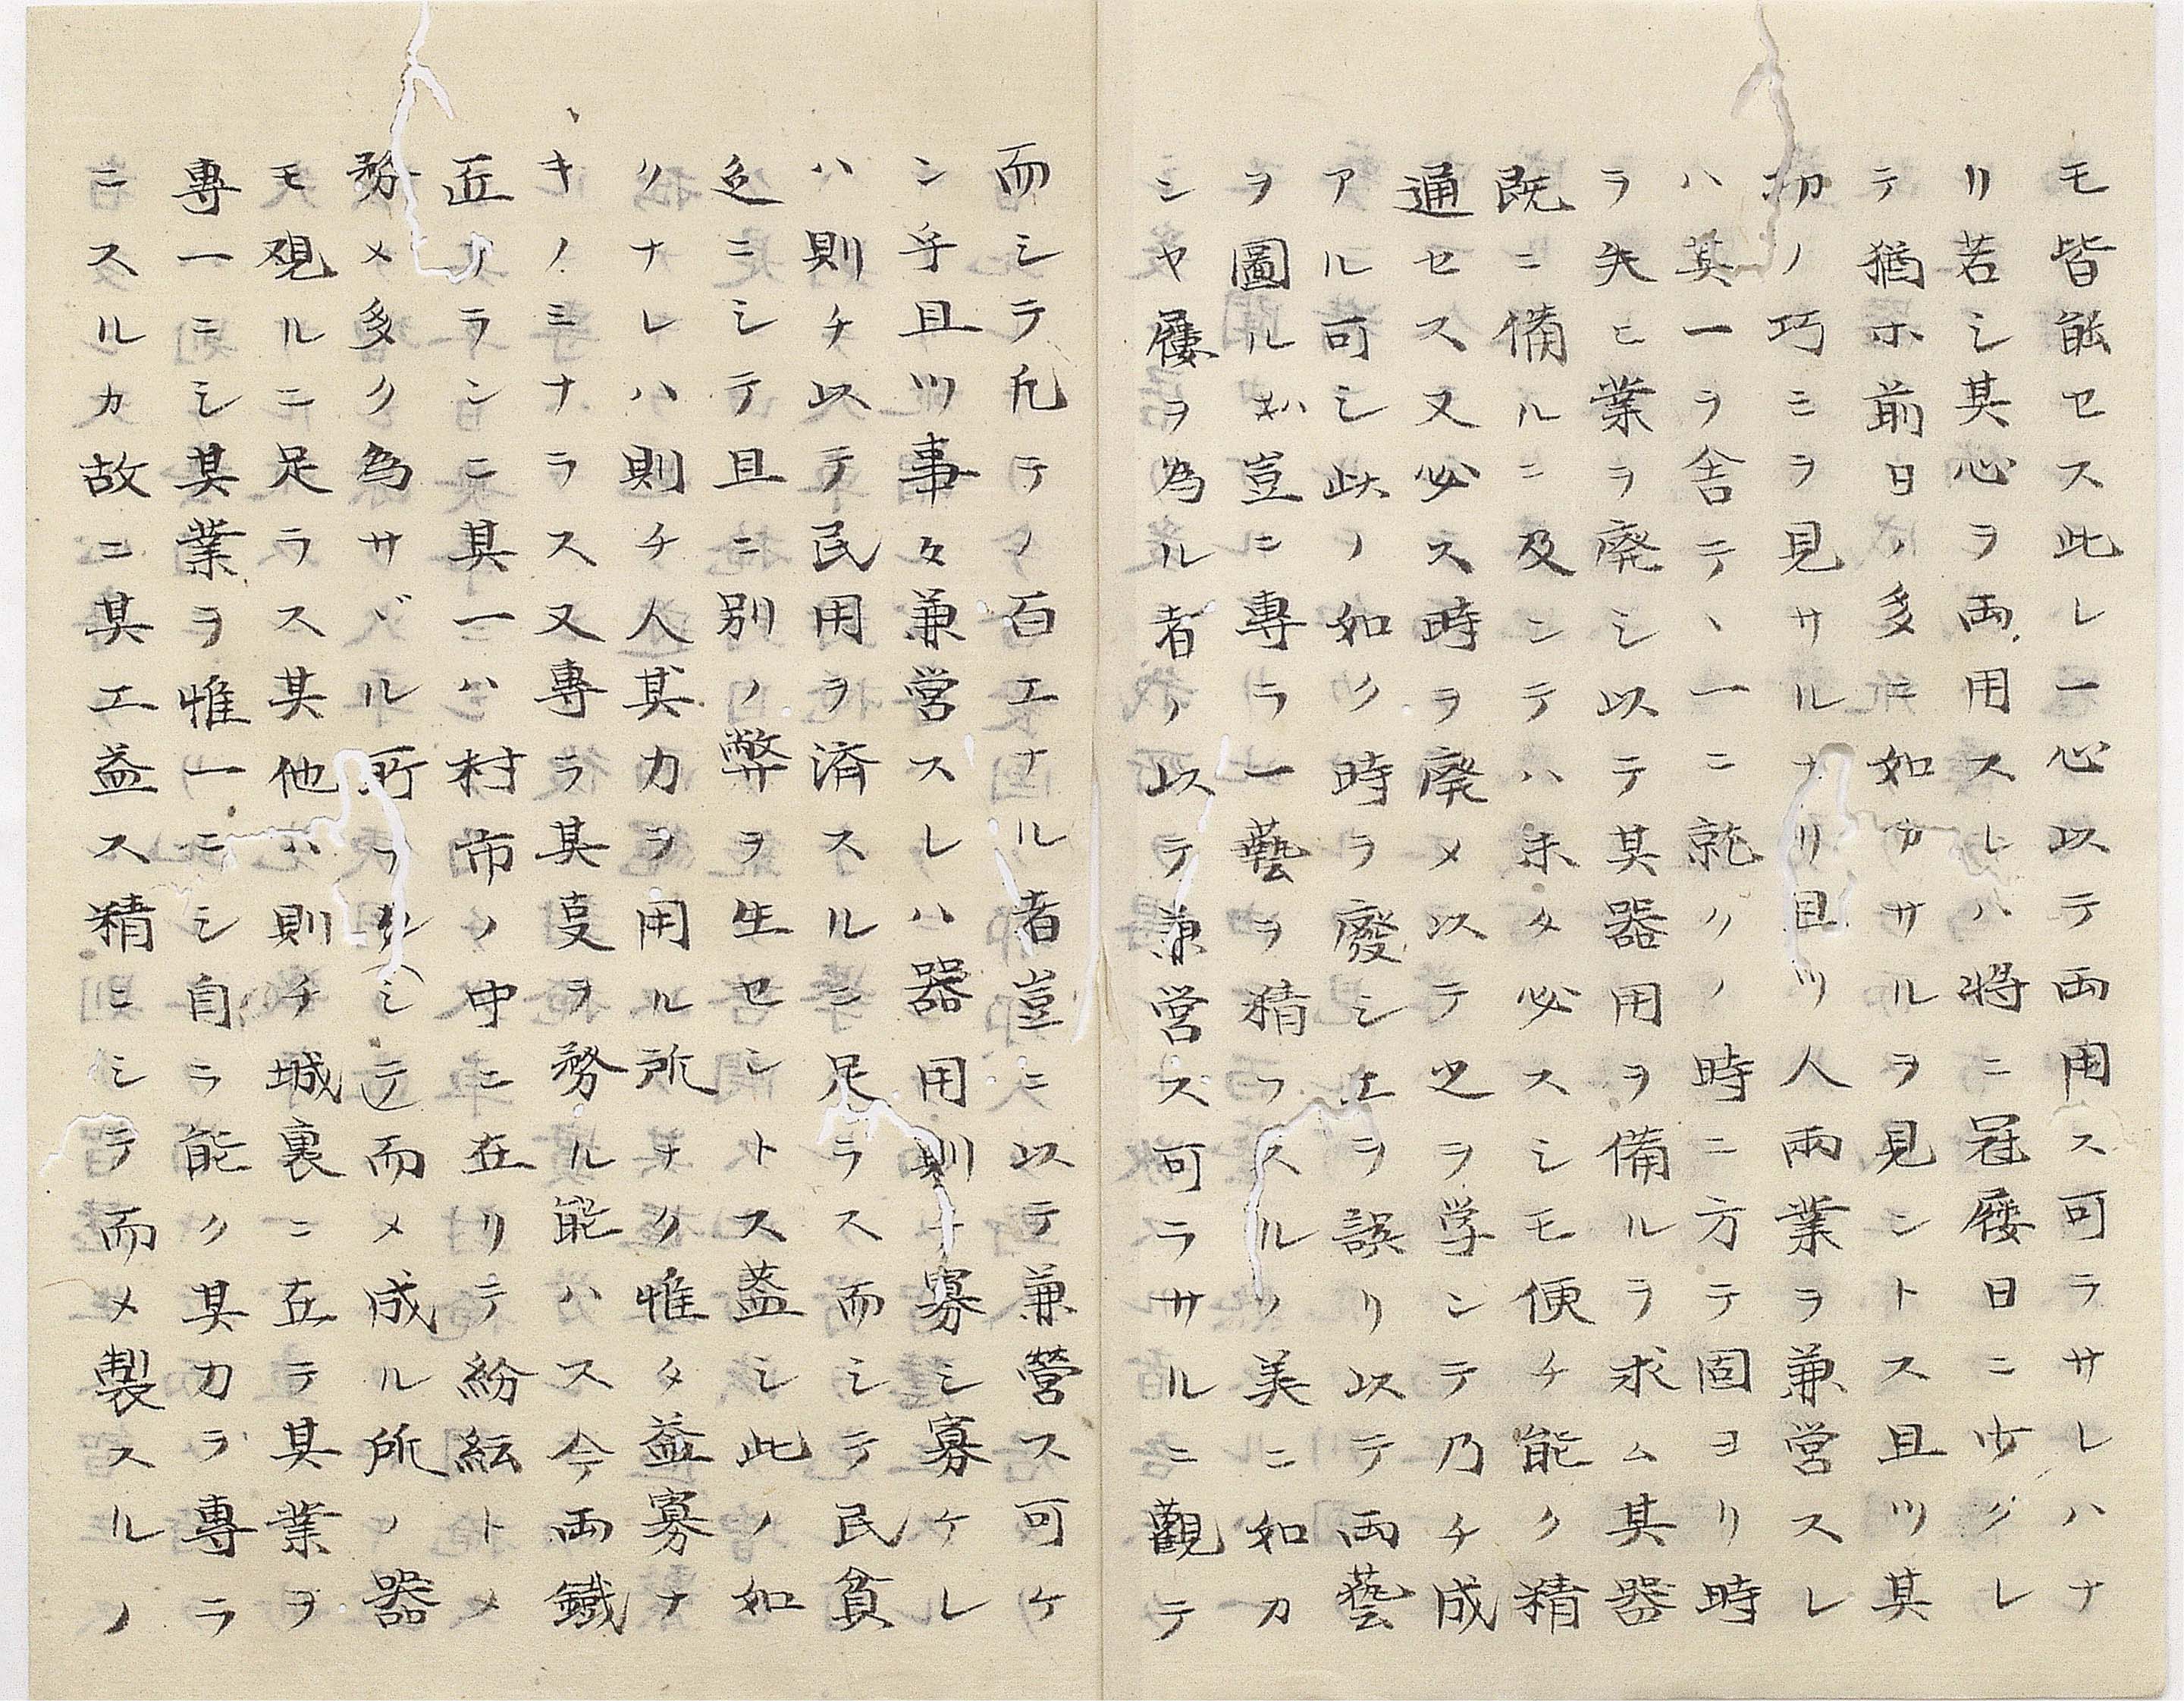 モ皆能セス此レ一心以テ両用ス可ラサレハナ
リ若シ其心ヲ両用スレハ将ニ冠屨日ニ少クレ
テ猶ホ前日ノ多ニ如カサルヲ見ントス且ツ其
功ノ巧ミヲ見サルナリ且ツ人両業ヲ兼営スレ
ハ其一ヲ舎テヽ一ニ就クノ時ニ方テ固ヨリ時
ヲ失ヒ業ヲ廃シ以テ其器用ヲ備ルヲ求ム其器
既ニ備ルニ及ンテハ未タ必スシモ便チ能ク精
通セス又必ス時ヲ廃メ以テ之ヲ学ンテ乃チ成
アル可シ此ノ如ク時ヲ廢シエヲ誤リ以テ両藝
ヲ圖ル豈ニ専ラ一藝ヲ精フスルノ美ニ如カ
シヤ屨ヲ為ル者ノ以テ兼営ス可ラサルニ觀テ
而シテ凡テノ百エナル者豈ニ以テ兼營ス可ケ
ン乎且ツ事々兼営スレハ器用則チ寡シ寡ケレ
ハ則チ以テ民用ヲ済スルニ足ラス而シテ民貧
乏ニシテ且ニ別ノ弊ヲ生セントス蓋シ此ノ如
クナレハ則チ人其力ヲ用ル所ナク惟タ益寡ナ
キノミナラス又專ラ其㕝ヲ務ル能ハス今両鐵
匠アランニ其一ハ村市ノ中ニ在リテ紛紜トメ
務メ多ク為サヾル所ヲシテ而メ成ル所ノ器
モ観ルニ足ラス其他ハ則チ城裏ニ在テ其業ヲ
専一ニシ其業ヲ惟一ニシ自ラ能ク其力ヲ專ラ
ニスルカ故ニ其エ益ス精ニシテ而メ製スルノ